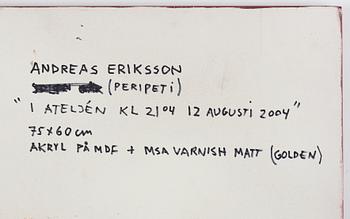 ANDREAS ERIKSSON
(PERIPETI)
"I ATELJÉN KL 2104 12 AUGUSTI 2004"
75X60 cm
AKRYL PÅ MDF + MSA VARNISH MATT (GOLDEN)